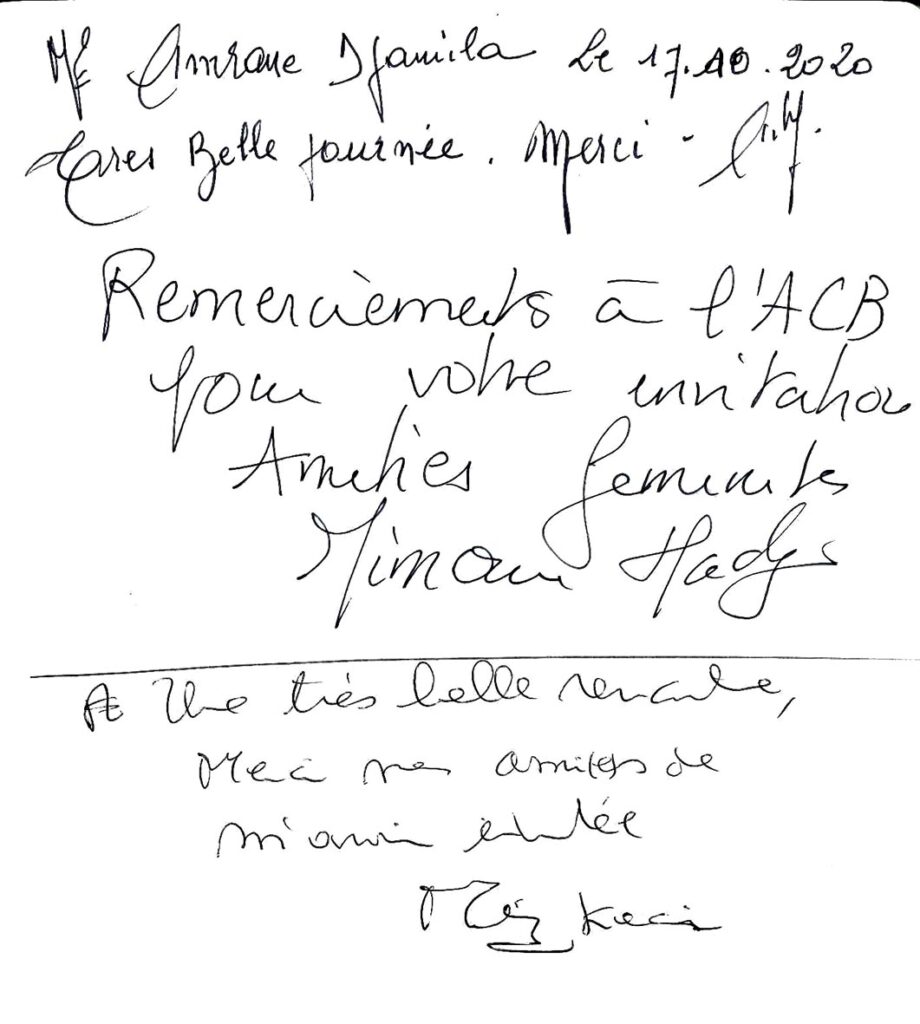 Me Amrane Djamila Le 17.10.2020
Tres Belle journée. Merci - A.M.
Remerciements à l'ACB
pour votre invitation
Amitiés feministes
Mimouni Hadja
Une très belle rencontre,
Merci mes amies de
m'avoir